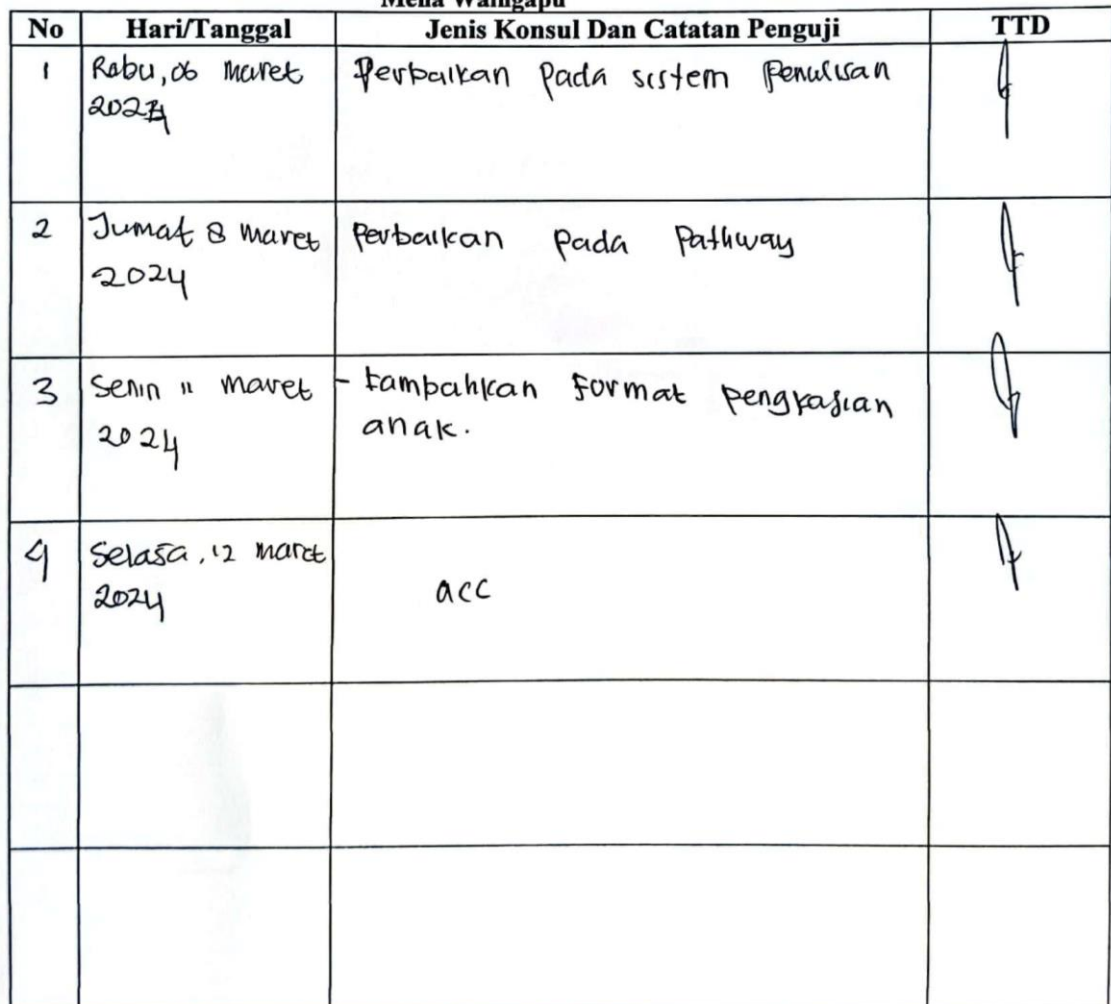 Meha Waingapu
No Hari/Tanggal Jenis Konsul Dan Catatan Penguji TTD
1 Rabu, 06 Maret Perbaikan pada sistem penulisan
2024
2 Jumat 8 maret Perbaikan pada Pathway
2024
3 Senin 11 maret - tambahkan format pengkajian
2024 anak.
4 Selasa, 12 maret
2024 acc